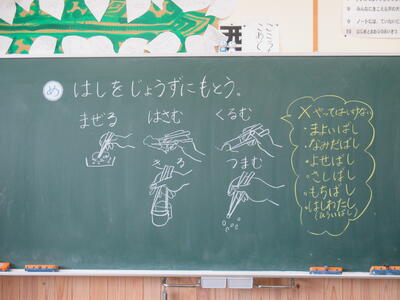 め はしをじょうずにもとう。
まぜる はさむ くるむ
きる つまむ
×やってはいけない
・まよいばし
・なみだばし
・よせばし
・さしばし
・もちばし
・はしわたし
(ひろいばし)